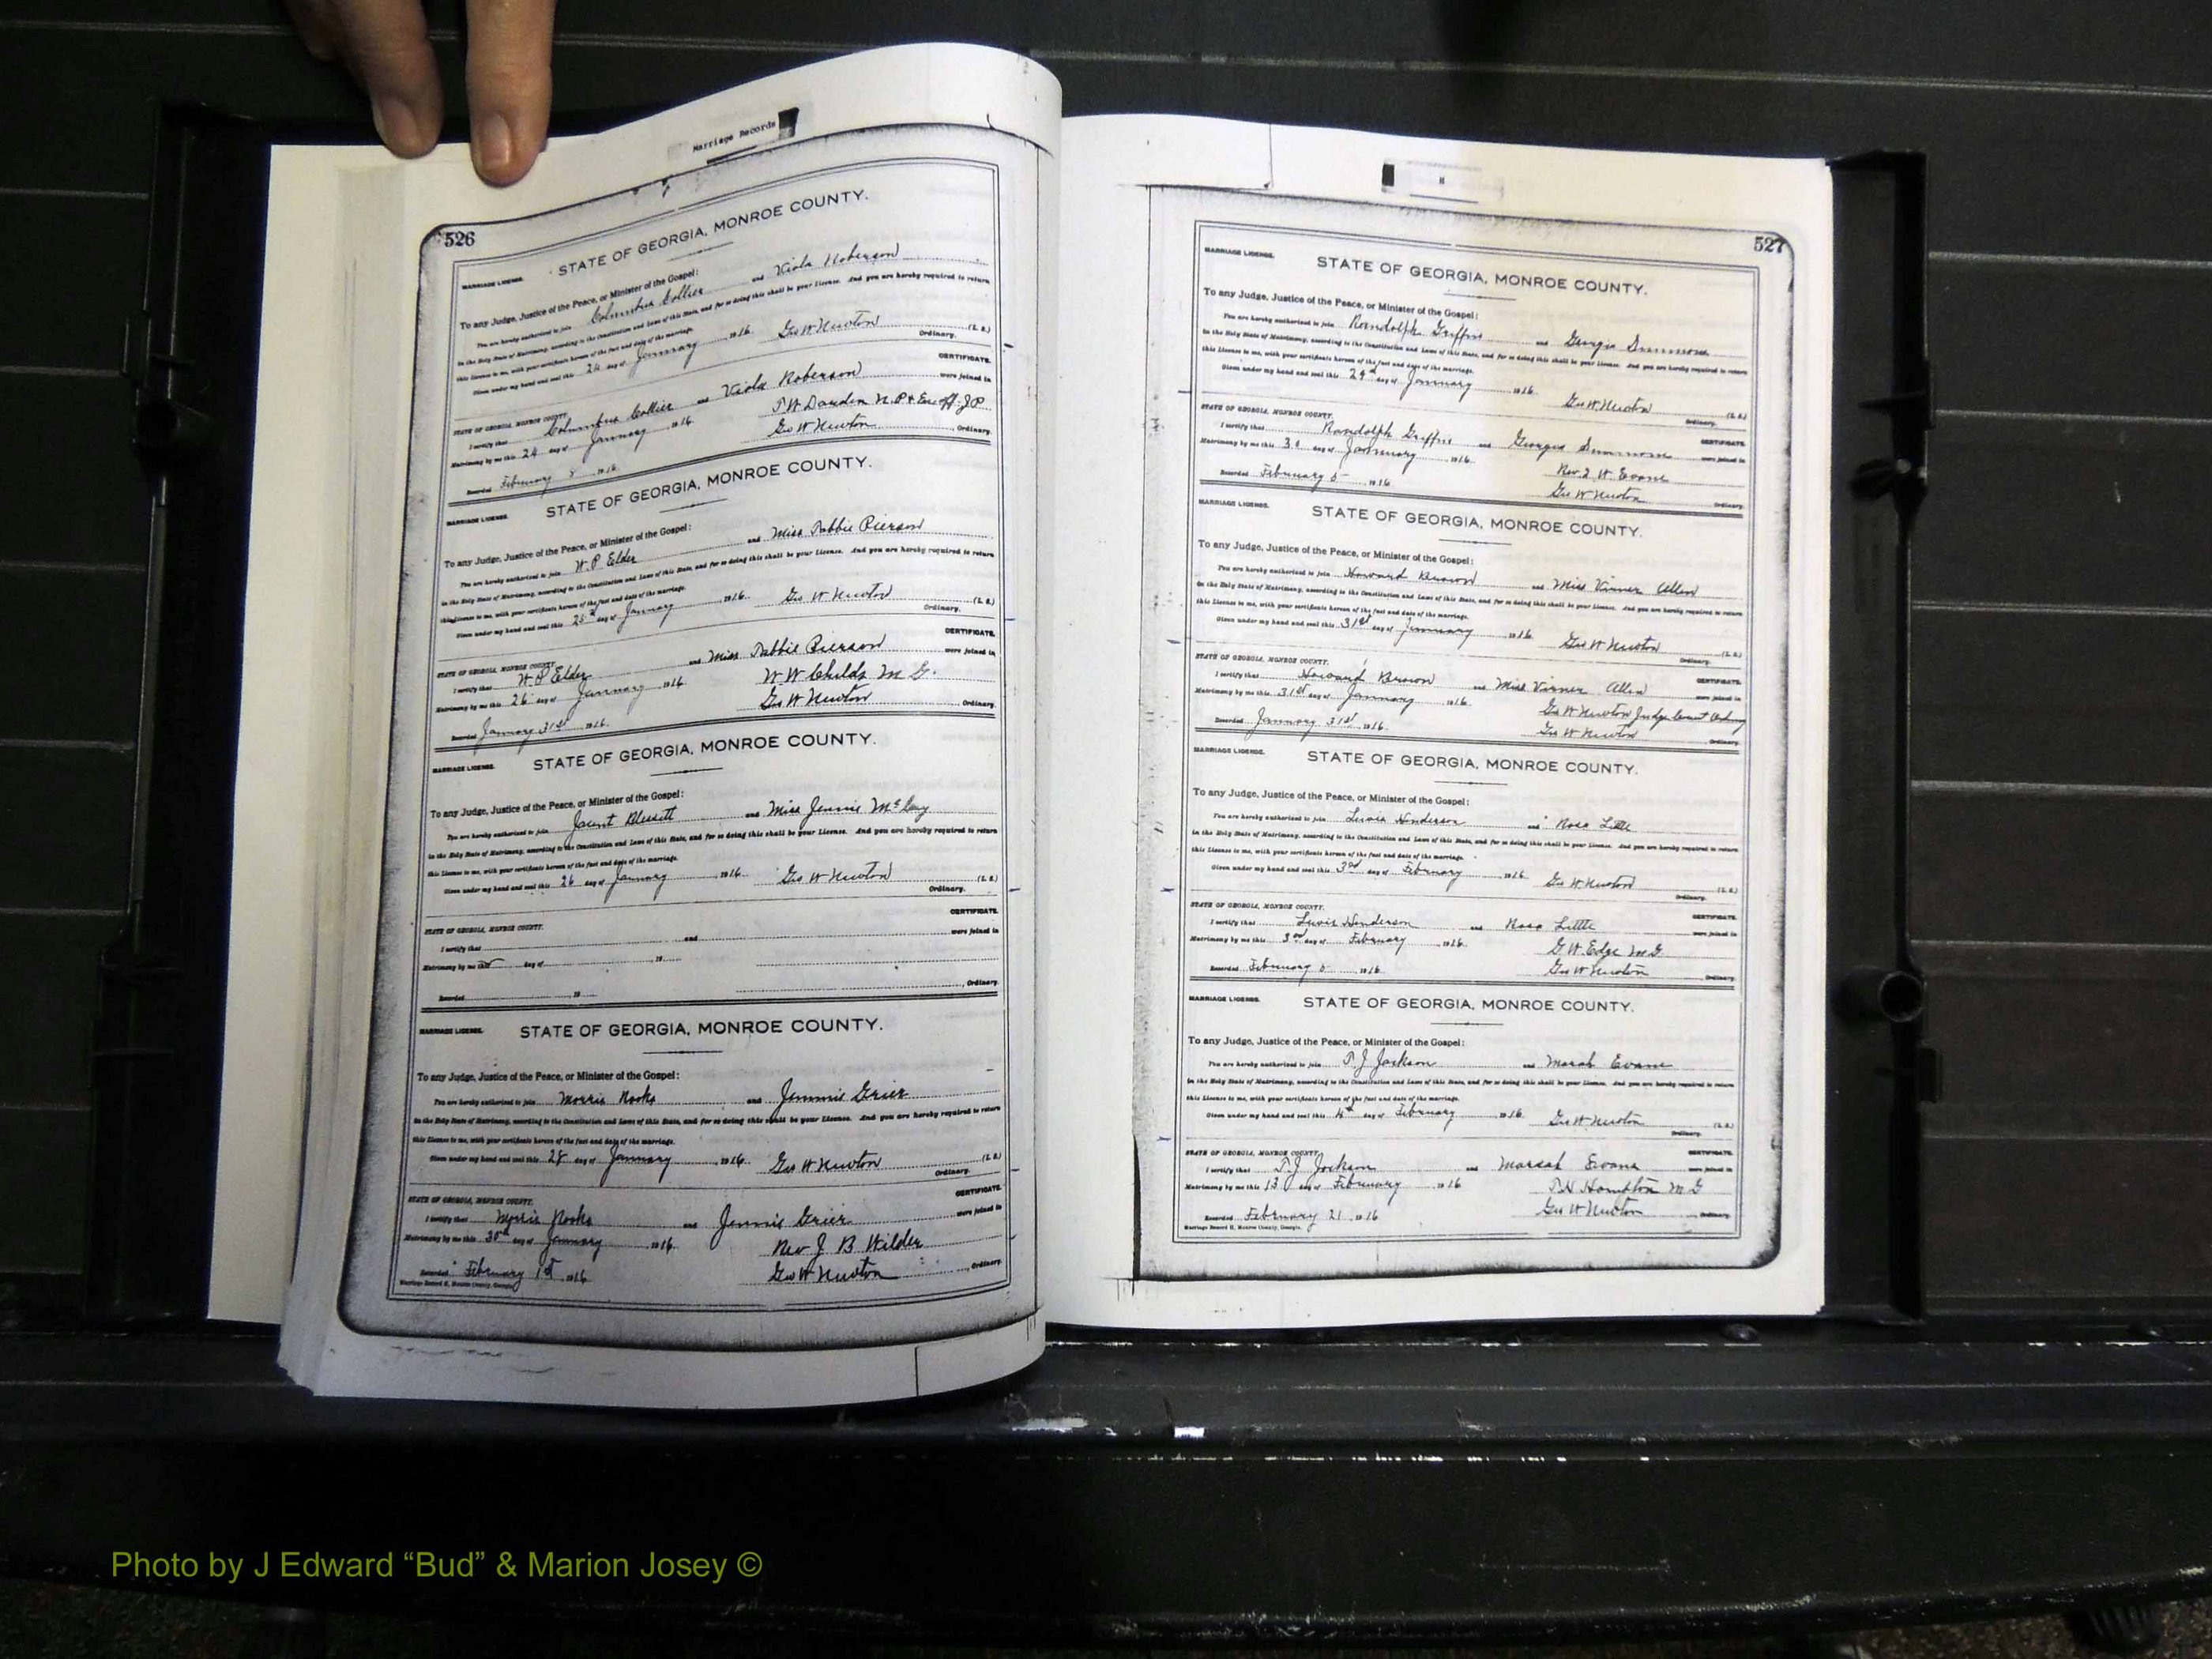 Marriage Records
526
STATE OF GEORGIA, MONROE COUNTY.
MARRIAGE LICENSE.
To any Judge, Justice of the Peace, or Minister of the Gospel:
You are hereby authorized to join Columbus Collier and Viola Roberson
in the Holy State of Matrimony, according to the Constitution and Laws of this State, and for so doing this shall be your License. And you are hereby required to return
this License to me, with your certificate hereon of the fact and date of the marriage.
Given under my hand and seal this 24 day of January 1916. Geo W Newton (L. S.)
Ordinary.
STATE OF GEORGIA, MONROE COUNTY. CERTIFICATE.
I certify that Columbus Collier and Viola Roberson were joined in
Matrimony by me this 24 day of January 1916. T W Darden N.P. & Ex off. J.P.
Recorded February 8 1916. Geo W Newton, Ordinary.
MARRIAGE LICENSE. STATE OF GEORGIA, MONROE COUNTY.
To any Judge, Justice of the Peace, or Minister of the Gospel:
You are hereby authorized to join W. P Elder and Miss Pierson
in the Holy State of Matrimony, according to the Constitution and Laws of this State, and for so doing this shall be your License. And you are hereby required to return
this License to me, with your certificate hereon of the fact and date of the marriage.
Given under my hand and seal this 25th day of January 1916. Geo W Newton (L. S.)
Ordinary.
STATE OF GEORGIA, MONROE COUNTY. CERTIFICATE.
I certify that W P Elder and Miss Pierson were joined in
Matrimony by me this 26 day of January 1916. W W Childs M G.
Recorded January 31st 1916. Geo W Newton Ordinary.
MARRIAGE LICENSE. STATE OF GEORGIA, MONROE COUNTY.
To any Judge, Justice of the Peace, or Minister of the Gospel:
You are hereby authorized to join and Miss Jennie
in the Holy State of Matrimony, according to the Constitution and Laws of this State, and for so doing this shall be your License. And you are hereby required to return
this License to me, with your certificate hereon of the fact and date of the marriage.
Given under my hand and seal this 26 day of January, 1916. Geo W Newton (L. S.)
Ordinary.
STATE OF GEORGIA, MONROE COUNTY. CERTIFICATE.
I certify that and were joined in
Matrimony by me this day of 19
Recorded 19 , Ordinary.
MARRIAGE LICENSE. STATE OF GEORGIA, MONROE COUNTY.
To any Judge, Justice of the Peace, or Minister of the Gospel:
You are hereby authorized to join Morris Rooks and Jimmie Grier
in the Holy State of Matrimony, according to the Constitution and Laws of this State, and for so doing this shall be your License. And you are hereby required to return
this License to me, with your certificate hereon of the fact and date of the marriage.
Given under my hand and seal this 28 day of January, 1916. Geo W Newton (L. S.)
Ordinary.
STATE OF GEORGIA, MONROE COUNTY. CERTIFICATE.
I certify that Morris Rooks and Jimmie Grier were joined in
Matrimony by me this 30th day of January 1916. Rev J B Wilder
Recorded February 1st, 1916 Geo W Newton, Ordinary.
Marriage Record H, Monroe County, Georgia.
527
MARRIAGE LICENSE. STATE OF GEORGIA, MONROE COUNTY.
To any Judge, Justice of the Peace, or Minister of the Gospel:
You are hereby authorized to join Randolph Griffin and Georgia Simmons
in the Holy State of Matrimony, according to the Constitution and Laws of this State, and for so doing this shall be your License. And you are hereby required to return
this License to me, with your certificate hereon of the fact and date of the marriage.
Given under my hand and seal this 29th day of January 1916. Geo W Newton (L. S.)
Ordinary.
STATE OF GEORGIA, MONROE COUNTY. CERTIFICATE.
I certify that Randolph Griffin and Georgia Simmons were joined in
Matrimony by me this 30 day of January 1916. Rev. W. Evans
Recorded February 5 1916 Geo W Newton Ordinary.
MARRIAGE LICENSE. STATE OF GEORGIA, MONROE COUNTY.
To any Judge, Justice of the Peace, or Minister of the Gospel:
You are hereby authorized to join Howard Brown and Miss Virner Allen
in the Holy State of Matrimony, according to the Constitution and Laws of this State, and for so doing this shall be your License. And you are hereby required to return
this License to me, with your certificate hereon of the fact and date of the marriage.
Given under my hand and seal this 31st day of January 1916. Geo W Newton (L. S.)
Ordinary.
STATE OF GEORGIA, MONROE COUNTY. CERTIFICATE.
I certify that Howard Brown and Miss Virner Allen were joined in
Matrimony by me this 31st day of January 1916. Geo W Newton Judge Court Ordinary
Recorded January 31st 1916. Geo W Newton Ordinary.
MARRIAGE LICENSE. STATE OF GEORGIA, MONROE COUNTY.
To any Judge, Justice of the Peace, or Minister of the Gospel:
You are hereby authorized to join Lewis Henderson and Rosa Little
in the Holy State of Matrimony, according to the Constitution and Laws of this State, and for so doing this shall be your License. And you are hereby required to return
this License to me, with your certificate hereon of the fact and date of the marriage.
Given under my hand and seal this 3rd day of February, 1916 Geo W Newton (L. S.)
Ordinary.
STATE OF GEORGIA, MONROE COUNTY. CERTIFICATE.
I certify that Lewis Henderson and Rosa Little were joined in
Matrimony by me this 3rd day of February 1916. G W. Edge M G.
Recorded February 5 1916 Geo W Newton Ordinary.
MARRIAGE LICENSE. STATE OF GEORGIA, MONROE COUNTY.
To any Judge, Justice of the Peace, or Minister of the Gospel:
You are hereby authorized to join T. J Jackson and Evans
in the Holy State of Matrimony, according to the Constitution and Laws of this State, and for so doing this shall be your License. And you are hereby required to return
this License to me, with your certificate hereon of the fact and date of the marriage.
Given under my hand and seal this 4th day of February 1916. Geo W Newton (L. S.)
Ordinary.
STATE OF GEORGIA, MONROE COUNTY. CERTIFICATE.
I certify that T. J Jackson and Evans were joined in
Matrimony by me this 13 day of February 1916 T. H Hampton M G
Recorded February 21 1916 Geo W Newton, Ordinary.
Marriage Record H, Monroe County, Georgia.
Photo by J Edward “Bud” & Marion Josey ©